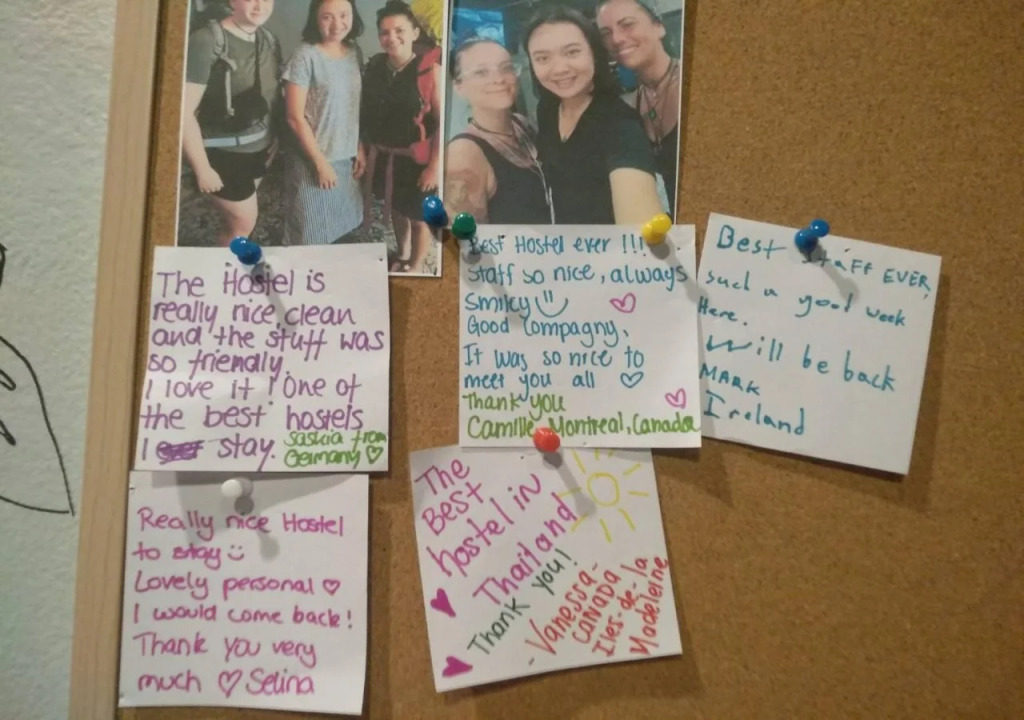 The Hostel is
really nice, clean
and the stuff was
so friendly.
I love it! One of
the best hostels
I ever stay.
Saskia from
Germany ♡
Best Hostel ever !!!
Staff so nice, always
Smiley
Good Compagny,
It was so nice to
meet you all ♡
Thank you
Camille, Montreal, Canada
Best Staff EVER,
such a good week
Here.
Will be back
MARK
Ireland
Really nice Hostel
to stay
Lovely personal ♡
I would come back!
Thank you very
much ♡ Selina
The
Best
hostel in
Thailand
Thank you!
- Vanessa-
CANADA
Iles-de-la
Madeleine